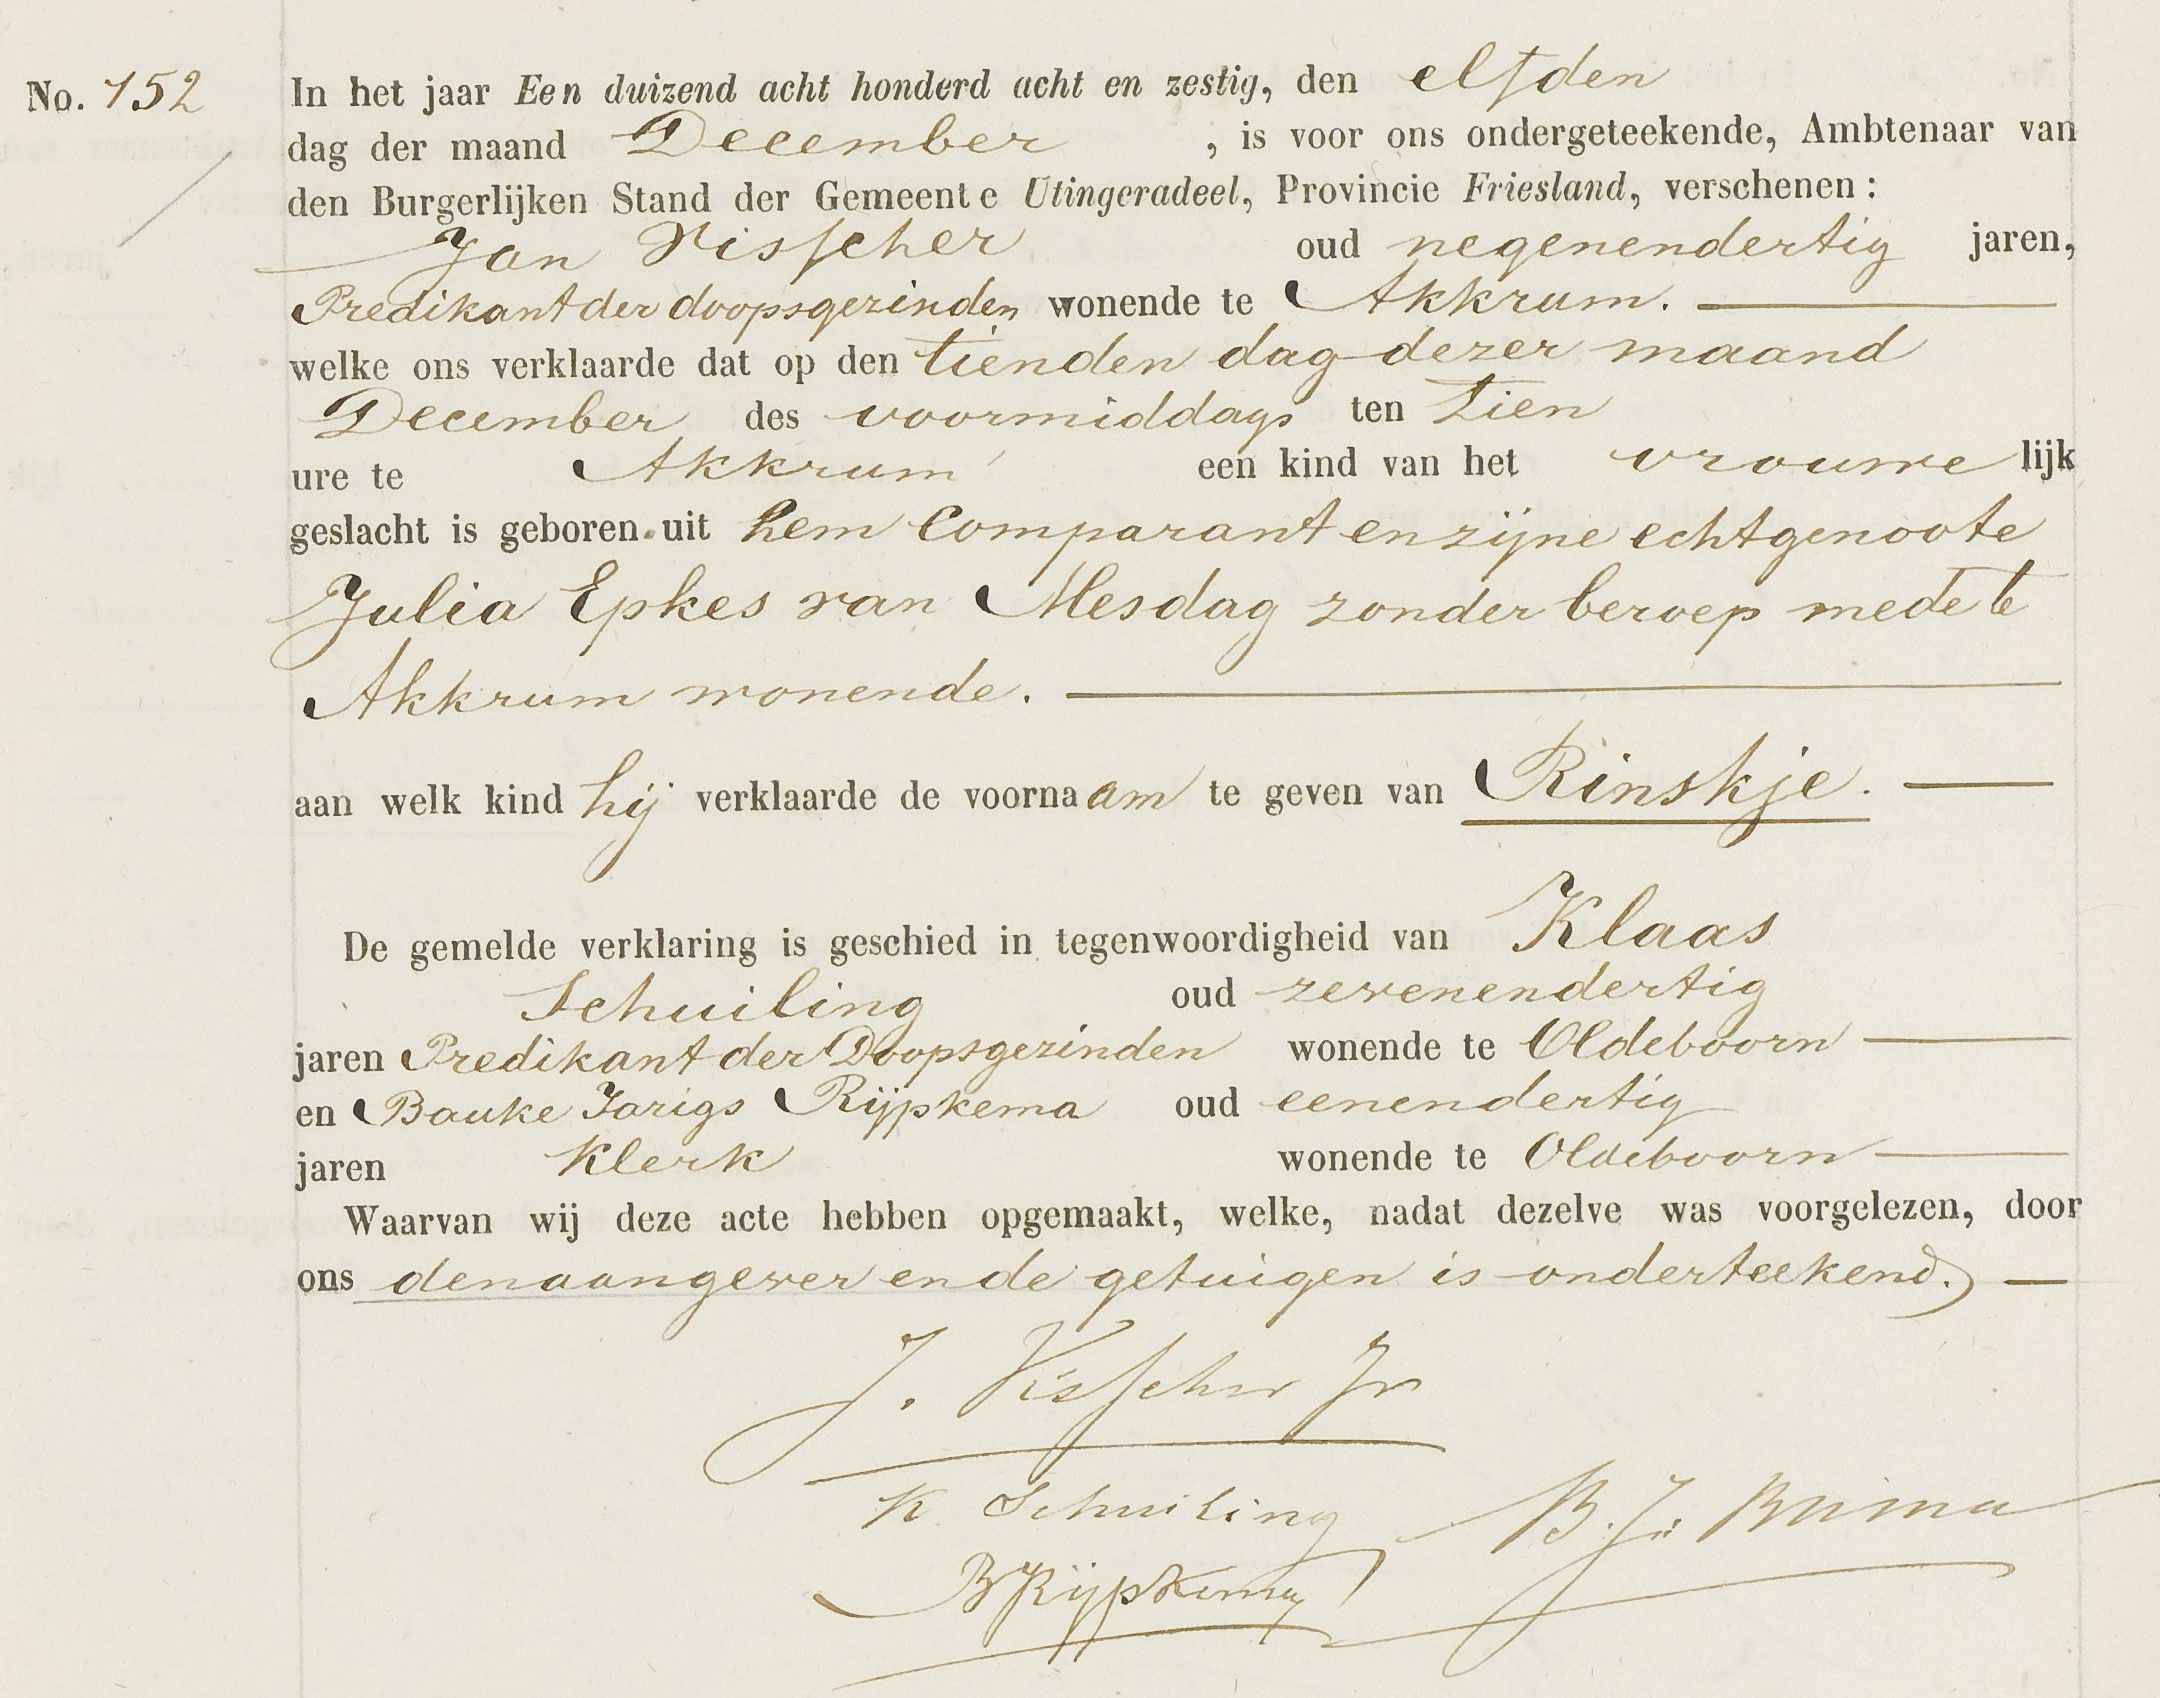 No. 152
In het jaar Een duizend acht honderd acht en zestig, den elfden
dag der maand December , is voor ons ondergeteekende, Ambtenaar van
den Burgerlijken Stand der Gemeente Utingeradeel, Provincie Friesland, verschenen:
Jan Visscher oud negenendertig jaren,
Predikant der doopsgezinden wonende te Akkrum.
welke ons verklaarde dat op den tienden dag dezer maand
December des voormiddags ten tien
ure te Akkrum een kind van het vrouwelijk
geslacht is geboren uit hem Comparant en zijne echtgenoote
Julia Epkes van Mesdag zonder beroep mede te
Akkrum wonende.
aan welk kind hij verklaarde de voornaam te geven van Rinskje.
De gemelde verklaring is geschied in tegenwoordigheid van Klaas
Schuiling oud zevenendertig
jaren Predikant der Doopsgezinden wonende te Oldeboorn
en Bauke Jarigs Rijpkema oud eenendertig
jaren Klerk wonende te Oldeboorn
Waarvan wij deze acte hebben opgemaakt, welke, nadat dezelve was voorgelezen, door
ons den aangever en de getuigen is onderteekend.
J. Visscher Jr
K Schuiling
B. J.
B Rijpkema